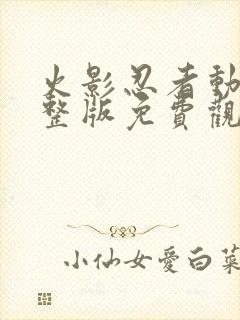 火影忍者動
整版免費觀
小仙女愛白菜